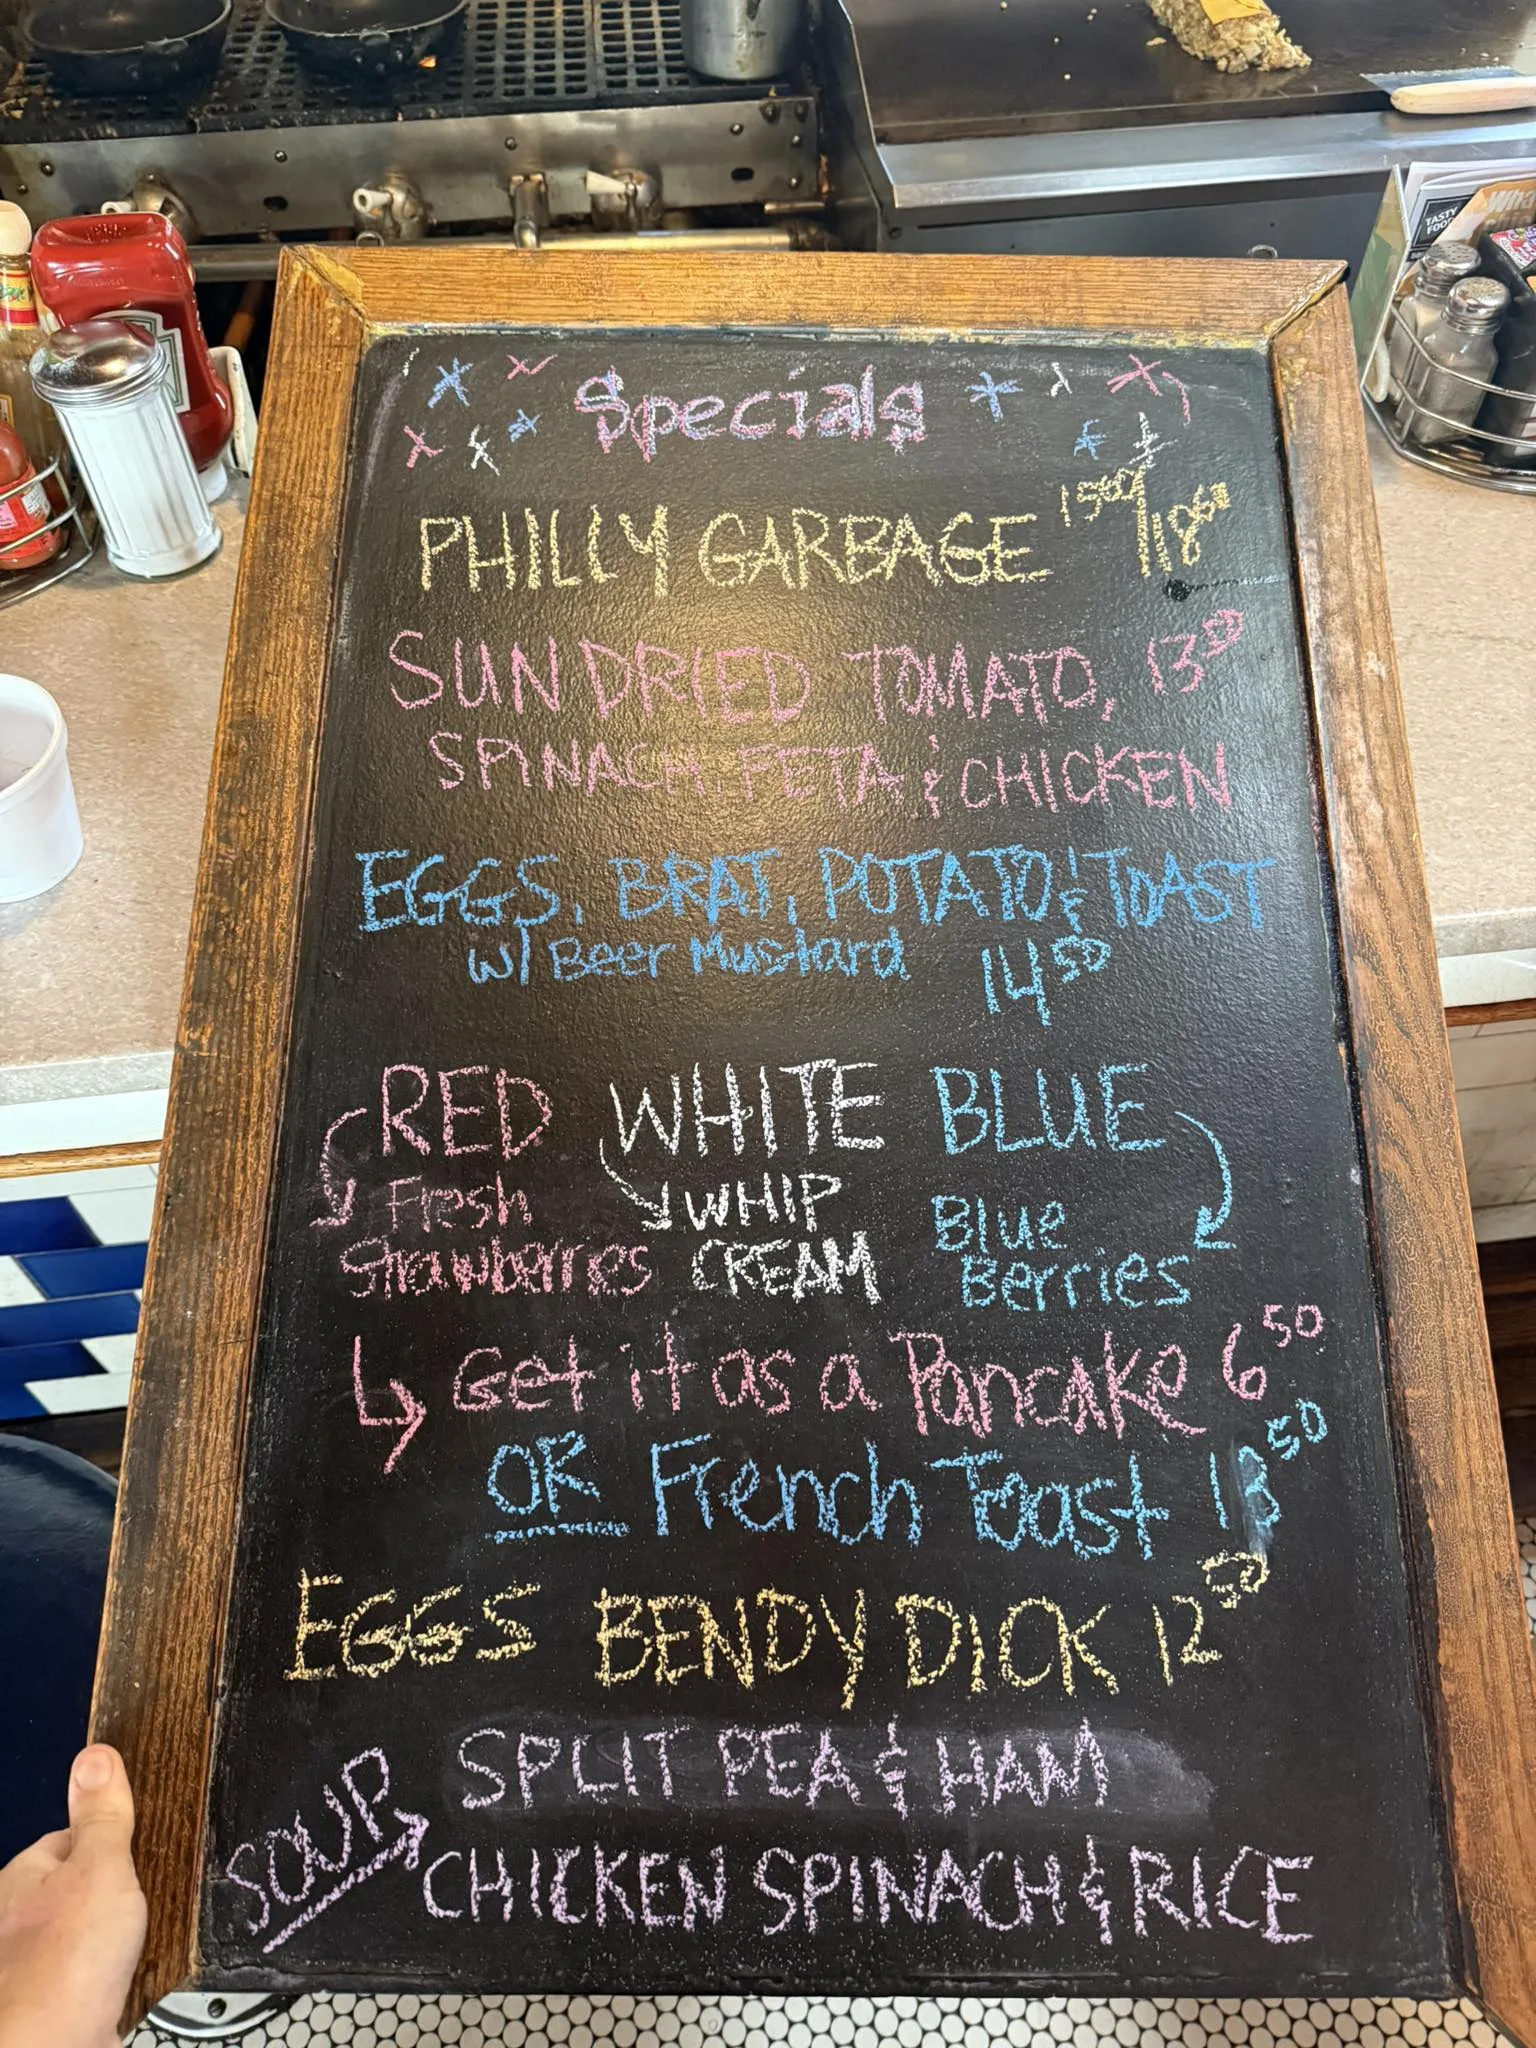 Specials
PHILLY GARBAGE 15⁰⁰/18⁵⁰
SUNDRIED TOMATO, 13⁵⁰
SPINACH, FETA & CHICKEN
EGGS, BRAT, POTATO & TOAST
w/ Beer Mustard 14⁵⁰
RED WHITE BLUE
Fresh Strawberries
WHIP CREAM
Blue Berries
Get it as a Pancake 6⁵⁰
OR French Toast 13⁵⁰
EGGS BENDY DICK 12⁵⁰
SOUP
SPLIT PEA & HAM
CHICKEN SPINACH & RICE
TASTY